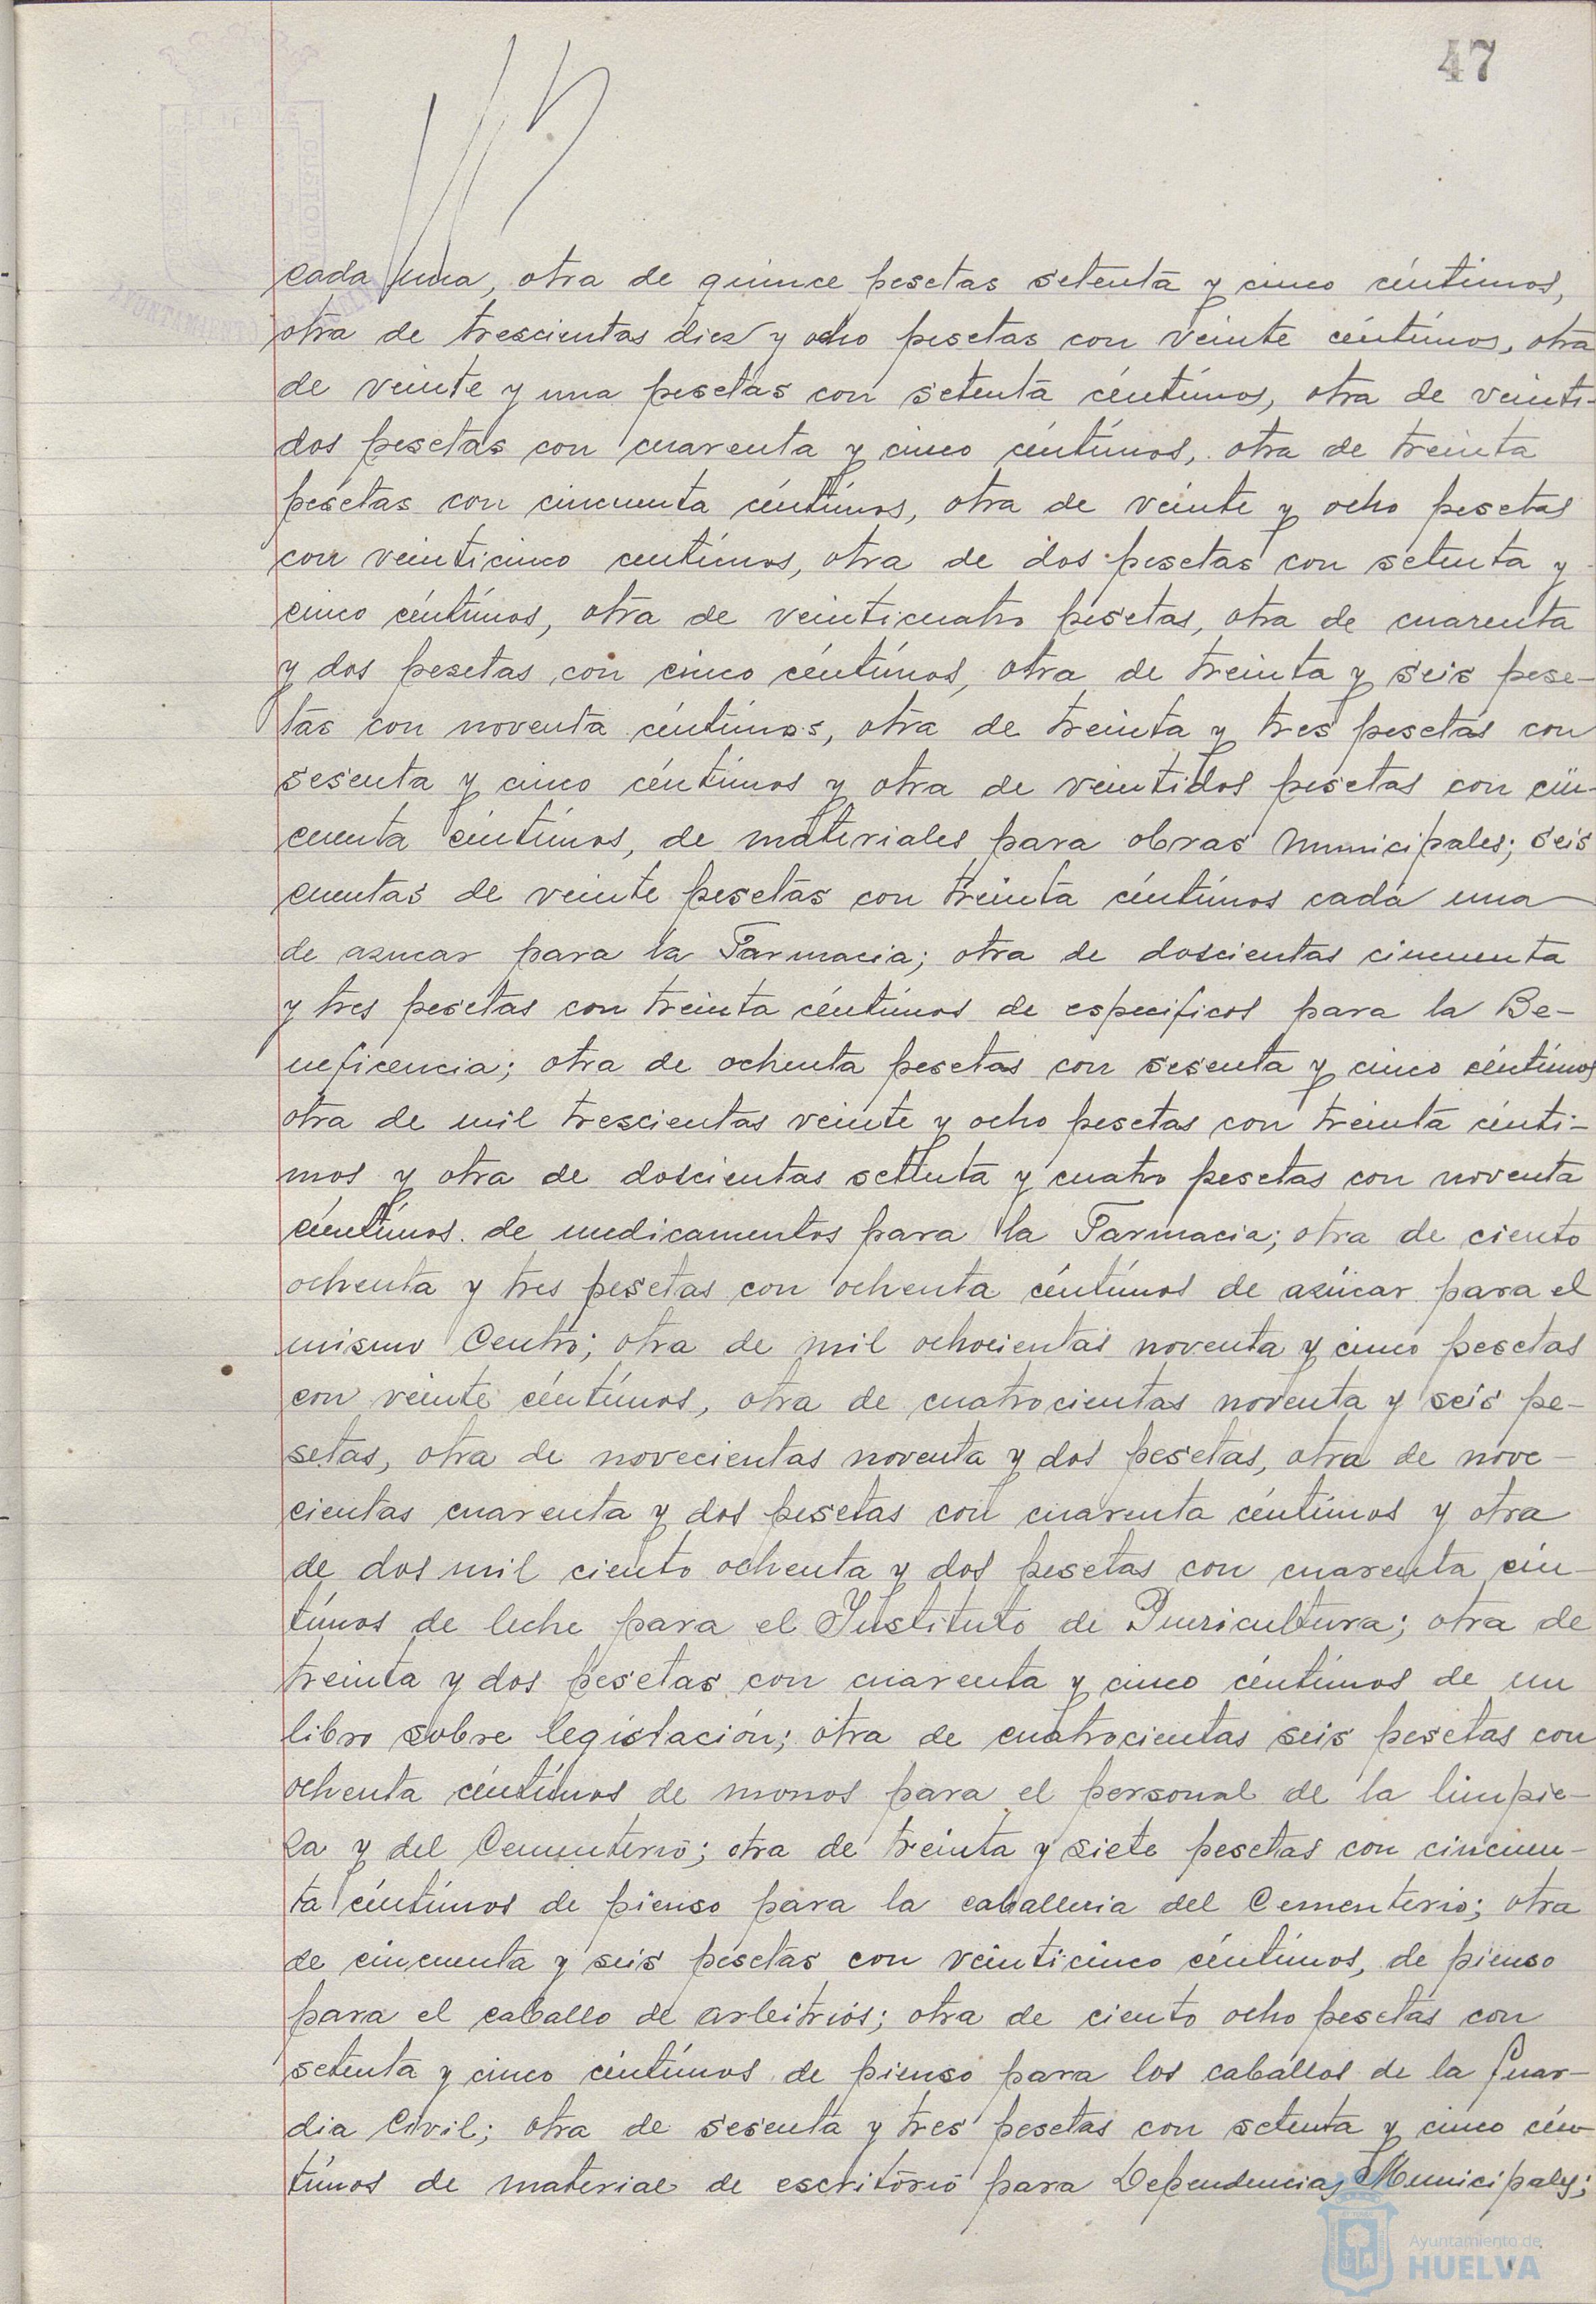 47
cada una, otra de quince pesetas setenta y cinco céntimos,
otra de trescientas diez y ocho pesetas con veinte céntimos, otra
de veinte y una pesetas con setenta céntimos, otra de veinti-
dos pesetas con cuarenta y cinco céntimos, otra de treinta
pesetas con cincuenta céntimos, otra de veinte y ocho pesetas
con veinticinco centimos, otra de dos pesetas con setenta y
cinco céntimos, otra de veinticuatro pesetas, otra de cuarenta
y dos pesetas con cinco céntimos, otra de treinta y seis pese-
tas con noventa céntimos, otra de treinta y tres pesetas con
sesenta y cinco céntimos y otra de veintidos pesetas con cin-
cuenta céntimos, de materiales para obras Municipales; seis
cuentas de veinte pesetas con treinta céntimos cada una
de azucar para la Farmacia; otra de doscientas cincuenta
y tres pesetas con treinta céntimos de especificos para la Be-
neficencia; otra de ochenta pesetas con sesenta y cinco céntimos
otra de mil trescientas veinte y ocho pesetas con treinta cénti-
mos y otra de doscientas setenta y cuatro pesetas con noventa
céntimos de medicamentos para la Farmacia; otra de ciento
ochenta y tres pesetas con ochenta céntimos de azúcar para el
mismo Centro; otra de mil ochocientas noventa y cinco pesetas
con veinte céntimos, otra de cuatrocientas noventa y seis pe-
setas, otra de novecientas noventa y dos pesetas, otra de nove-
cientas cuarenta y dos pesetas con cuarenta céntimos y otra
de dos mil ciento ochenta y dos pesetas con cuarenta cén-
timos de leche para el Instituto de Puericultura; otra de
treinta y dos pesetas con cuarenta y cinco céntimos de un
libro sobre legislación; otra de cuatrocientas seis pesetas con
ochenta céntimos de monos para el personal de la limpie-
za y del Cementerio; otra de treinta y siete pesetas con cincuen-
ta céntimos de pienso para la caballeria del Cementerio; otra
de cincuenta y seis pesetas con veinticinco céntimos, de pienso
para el caballo de arbitrios; otra de ciento ocho pesetas con
setenta y cinco céntimos de pienso para los caballos de la Guar-
dia Civil; otra de sesenta y tres pesetas con setenta y cinco cén-
timos de material de escritorio para Dependencias Municipales;
Ayuntamiento de
HUELVA